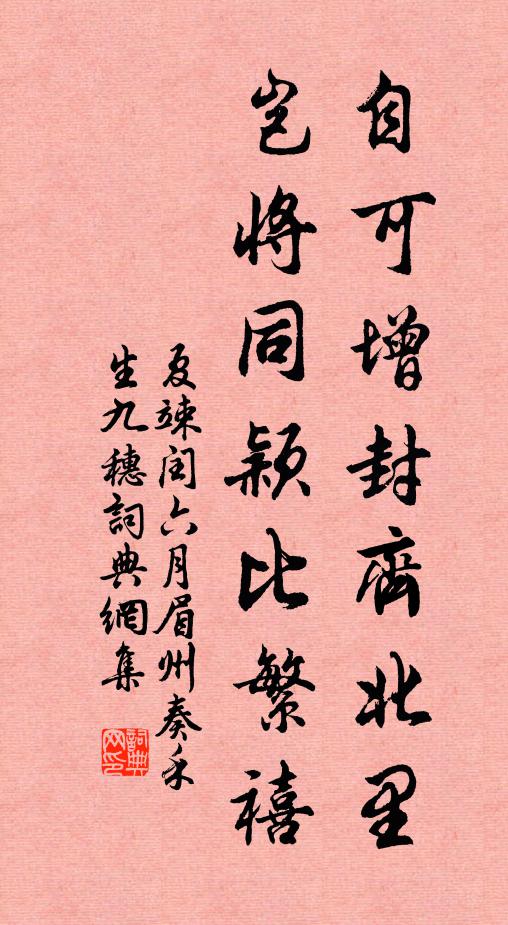 自可增封齊北里
豈將同颖比繁禧
夏竦闰六月眉州奏禾
生九穗詞典網集
詞典網印